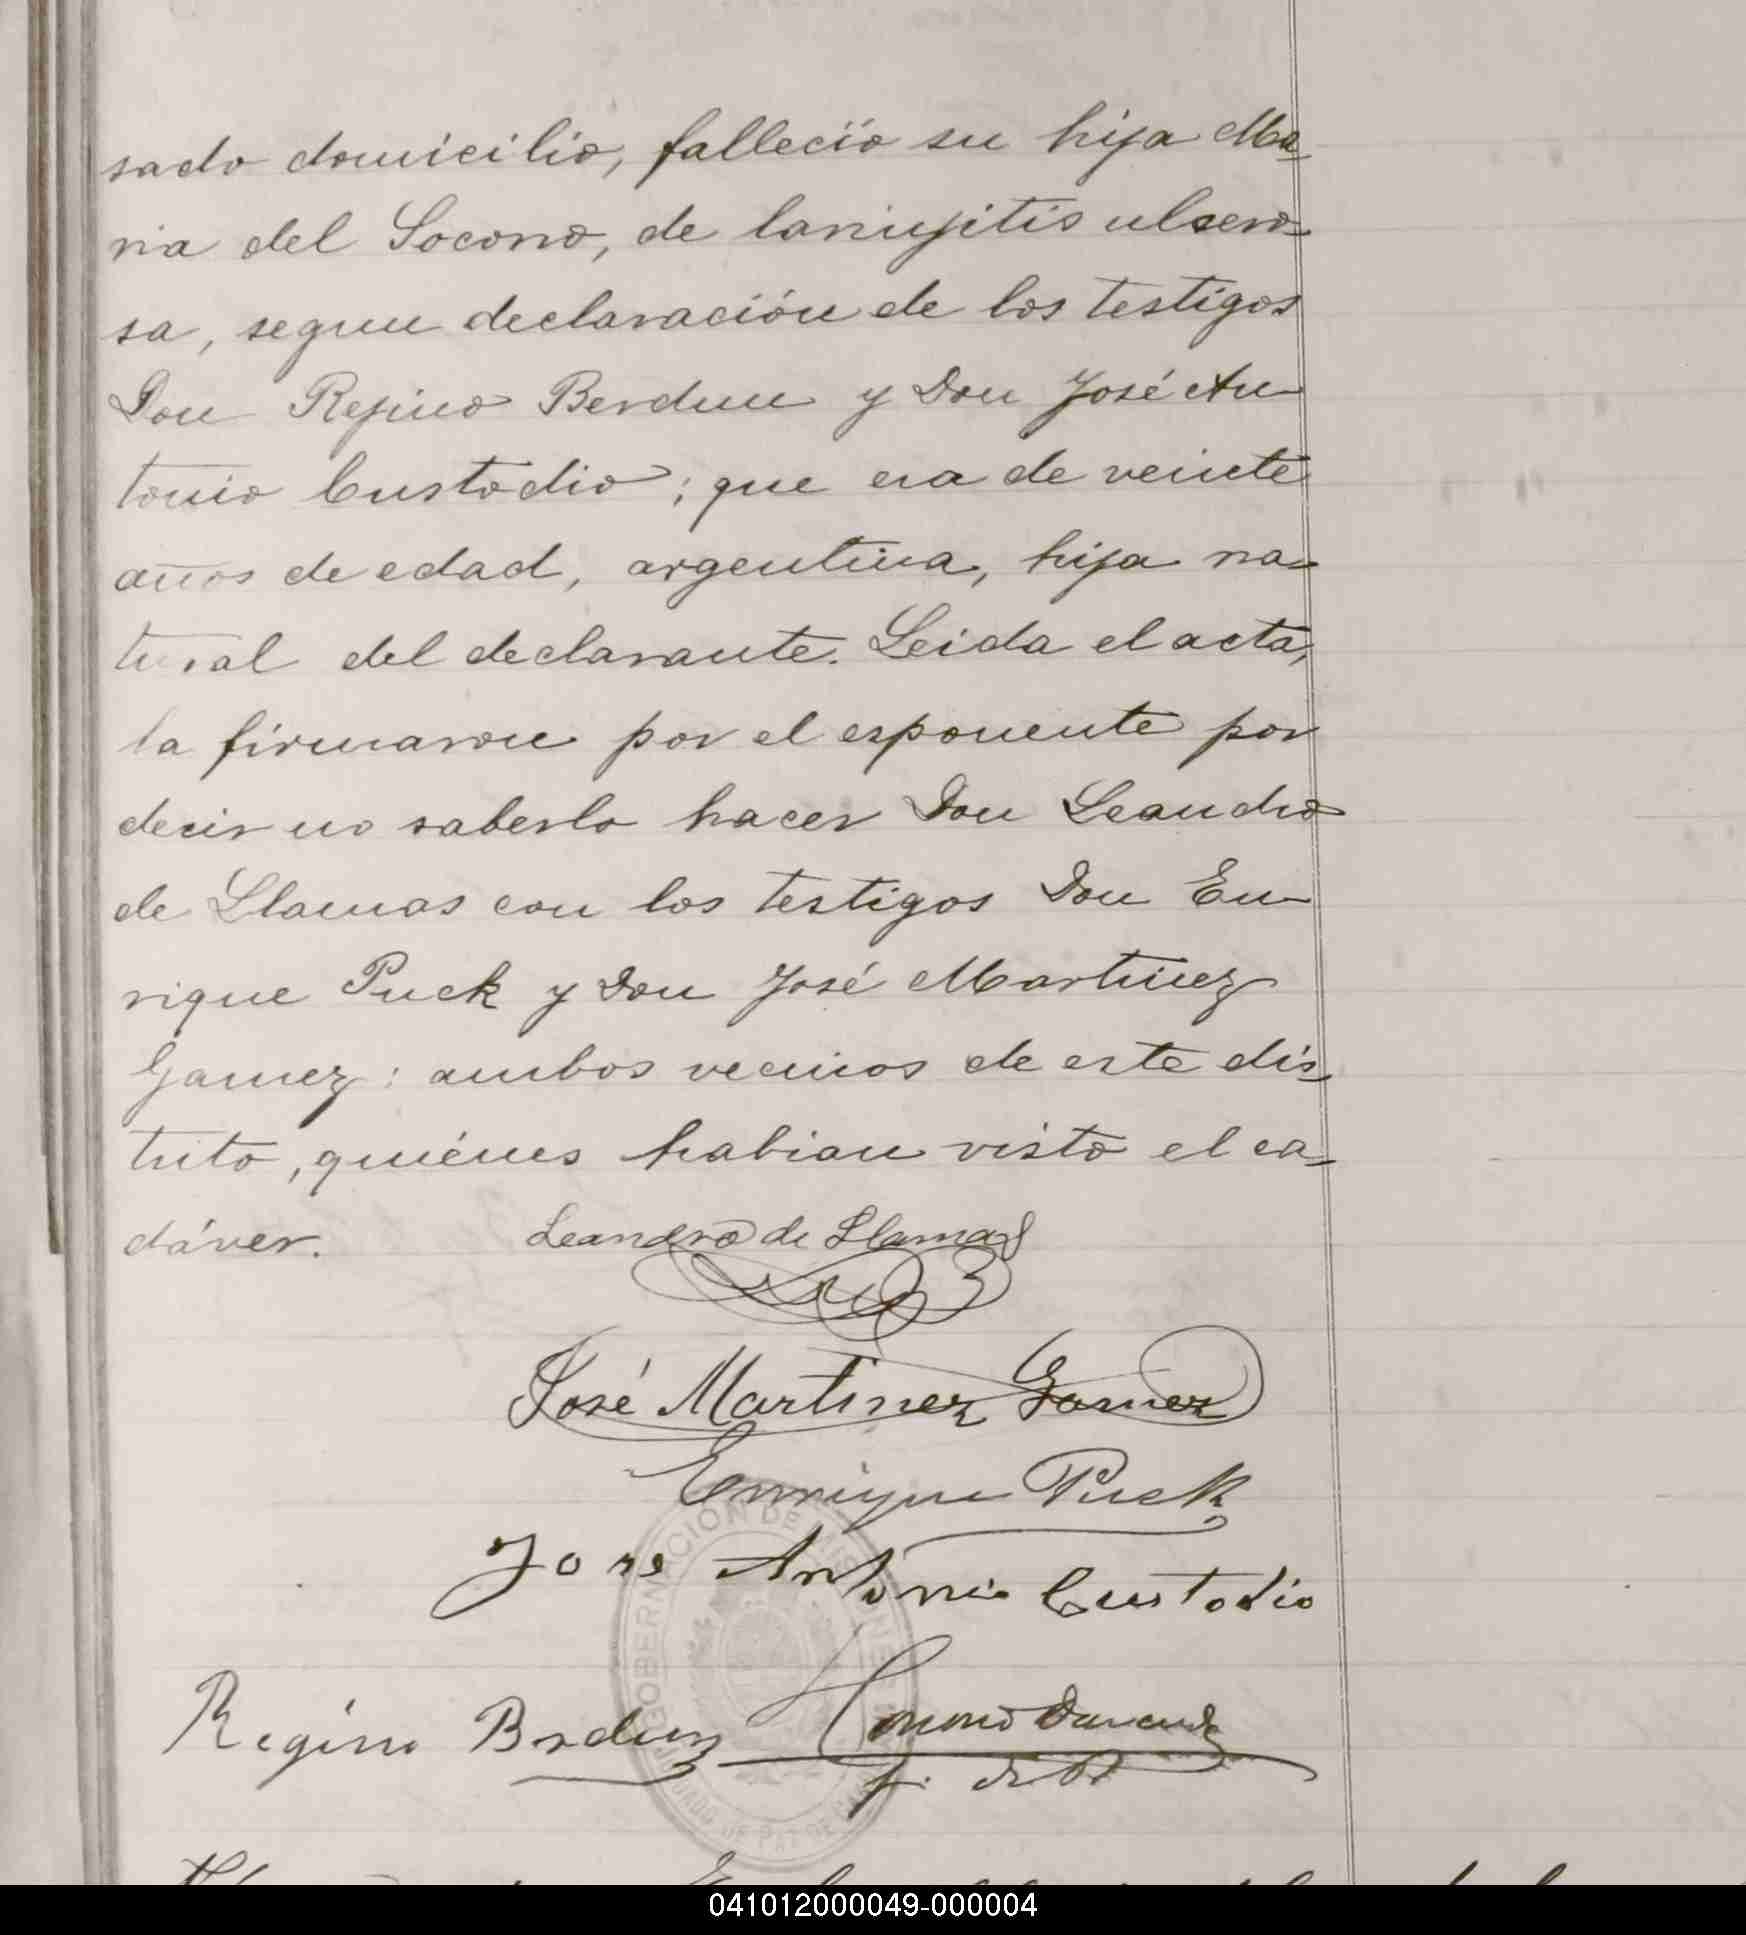 sado domicilio, fallecío su hija Ma-
ria del Socorro, de laringitis ulsero-
sa, segun declaración de los testigos
Don Regino Berdun y Don José An-
tonio Custodio; que era de veinte
años de edad, argentina, hija na-
tural del declarante. Leida el acta,
la firmaron por el esponente por
decir no saberlo hacer Don Leandro
de Llamas con los testigos Don En-
rique Puck y Don José Martinez
Gamez: ambos vecinos de este dis-
trito, quiénes habian visto el ca-
dáver.
Leandro de Llamas
José Martinez Gamez
Enrique Puck
Jose Antonio Custodio
Regino Berdun
J. de P.
GOBERNACION DE MISIONES
JUZGADO DE PAZ DE
041012000049-000004